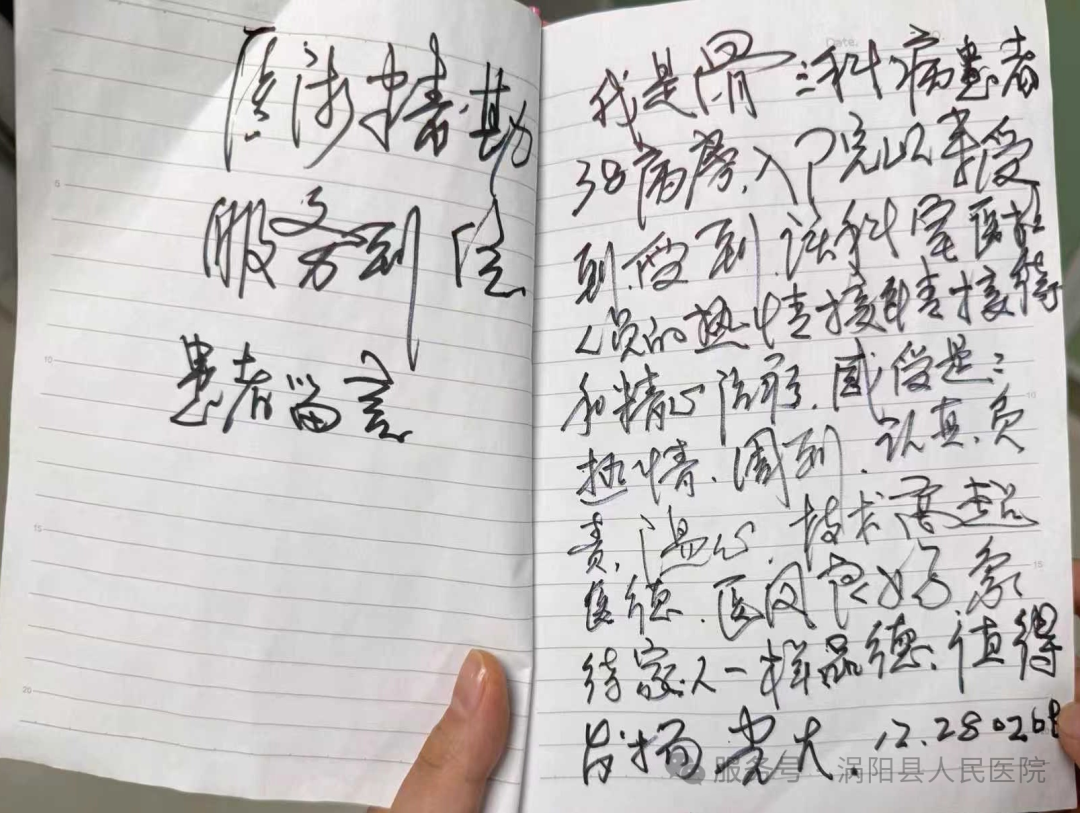 医术精勘
服务到位
患者留言
我是骨三科病患者
38病房.入院以来受
到.受到.该科室医护
人员的热情接待
和精心治疗.感受是:
热情.周到.认真.负
责.温心.技术高超
医德.医风良好象
待家人一样品德.值得
发扬.光大.12.28
服务号 涡阳县人民医院
Date.
5
10
15
20
10
15